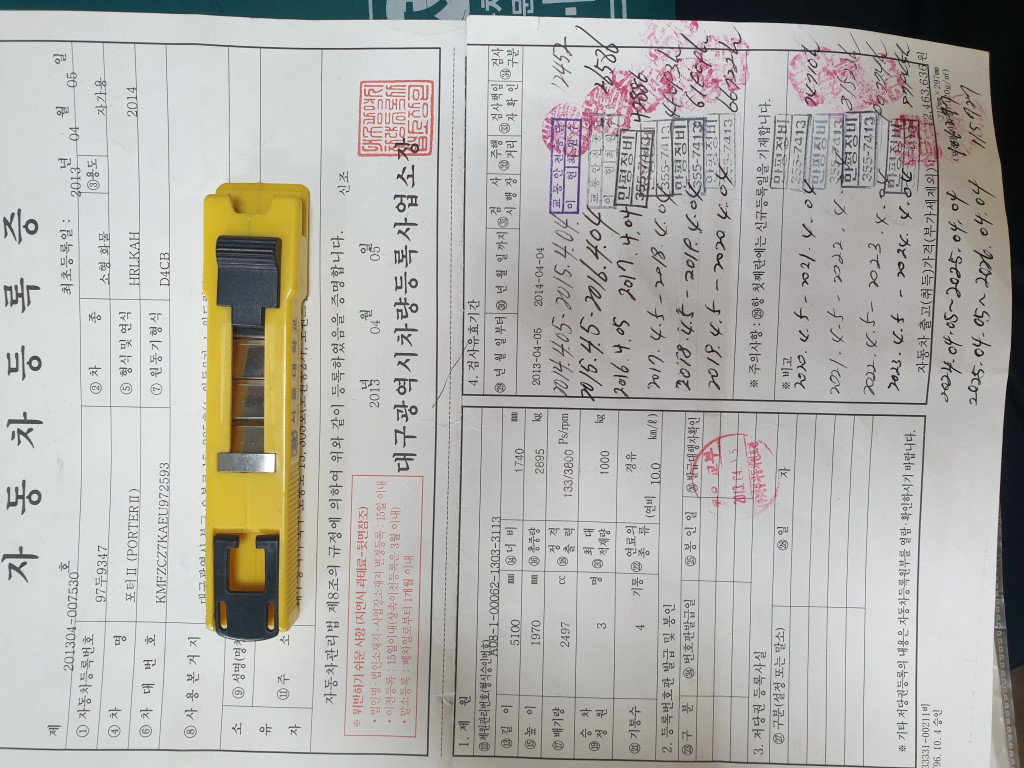 자동차등록증
제 201304-007530호
최초등록일 : 2013년 04월 05일
① 자동차등록번호 97두9347 ② 차 종 소형 화물 ③용도 자가용
④ 차 명 포터Ⅱ (PORTERⅡ) ⑤ 형식 및 연식 HR1,KAH 2014
⑥ 차 대 번 호 KMFZCZ7KAEU972593 ⑦ 원동기 형식 D4CB
⑧ 사 용 본 거 지
소 유 자
⑨ 성명(명
⑩ 주 소
자동차관리법 제8조의 규정에 의하여 위와 같이 등록하였음을 증명합니다.
※ 위반하기 쉬운 사항 (지연시 과태료-뒷면참조)
• 법인명·법인소재지·사업장소재지 변경등록 : 15일 이내
• 이전등록 : 15일이내(상속이전등록은 3월 이내)
• 말소등록 : 폐차일로부터 1개월 이내
2013년 04월 05일
신조
대구광역시차량등록사업소장
1. 제 원
⑫제원관리번호(형식승인번호) A08-1-00062-1303-3113
⑬ 길 이 5100 ㎜ ⑭ 너 비 1740 ㎜
⑮ 높 이 1970 ㎜ ⑯ 총중량 2895 kg
⑰ 배기량 2497 cc ⑱ 정 격 출 력 133/3800 Ps/rpm
⑲ 승 차 정 원 3 명 ⑳ 최 대 적재량 1000 kg
㉑ 기통수 4 기통 ㉒ 연료의 종 류 경유 (연비 10.0 km/ℓ)
2. 등록번호판 발급 및 봉인
㉓ 구 분 ㉔ 번호판발급일 ㉕ 봉 인 일 ㉖ 발급대행자확인
교부
2013. 04. 15
3. 저당권 등록사실
㉗ 구분(설정 또는 말소) ㉘ 일 자
※ 기타 저당권등록의 내용은 자동차등록원부를 열람·확인하시기 바랍니다.
96. 10. 4 승인
4. 검사유효기간
㉙ 년 월 일 부 터 ㉚ 년 월 일 까 지 ㉛ 검 사 시 행 장 ㉜ 주행 거리 ㉝ 검사책임 자 확 인 ㉞ 검사 구분
2013-04-05 2014-04-04
2014.4.05-2015.4.04 12452
2015.4.5-2016.4.04 21586
2016.4.05 2017.4.04 만평정비 355-7413
2017.4.5-2018.4.04 만평정비 355-7413
2018.4.5-2019.4.04 만평정비 355-7413
2019.4.5-2020.4.04 만평정비 355-7413
※ 주의사항 : ㉙항 첫째란에는 신규등록일을 기재합니다.
※ 비고
2020.4.5-2021.4.04 만평정비 355-7413
2021.4.5-2022.4. 만평정비 355-7413
2022.4.5-2023.4.0 만평정비 355-7413
2023.4.5-2024.4.04 355-7413
자동차 출고(취득)가격(부가세제외) 12,463,636원
2024.04.05~2025.04.04
2025.04.05~2026.04.04 115127